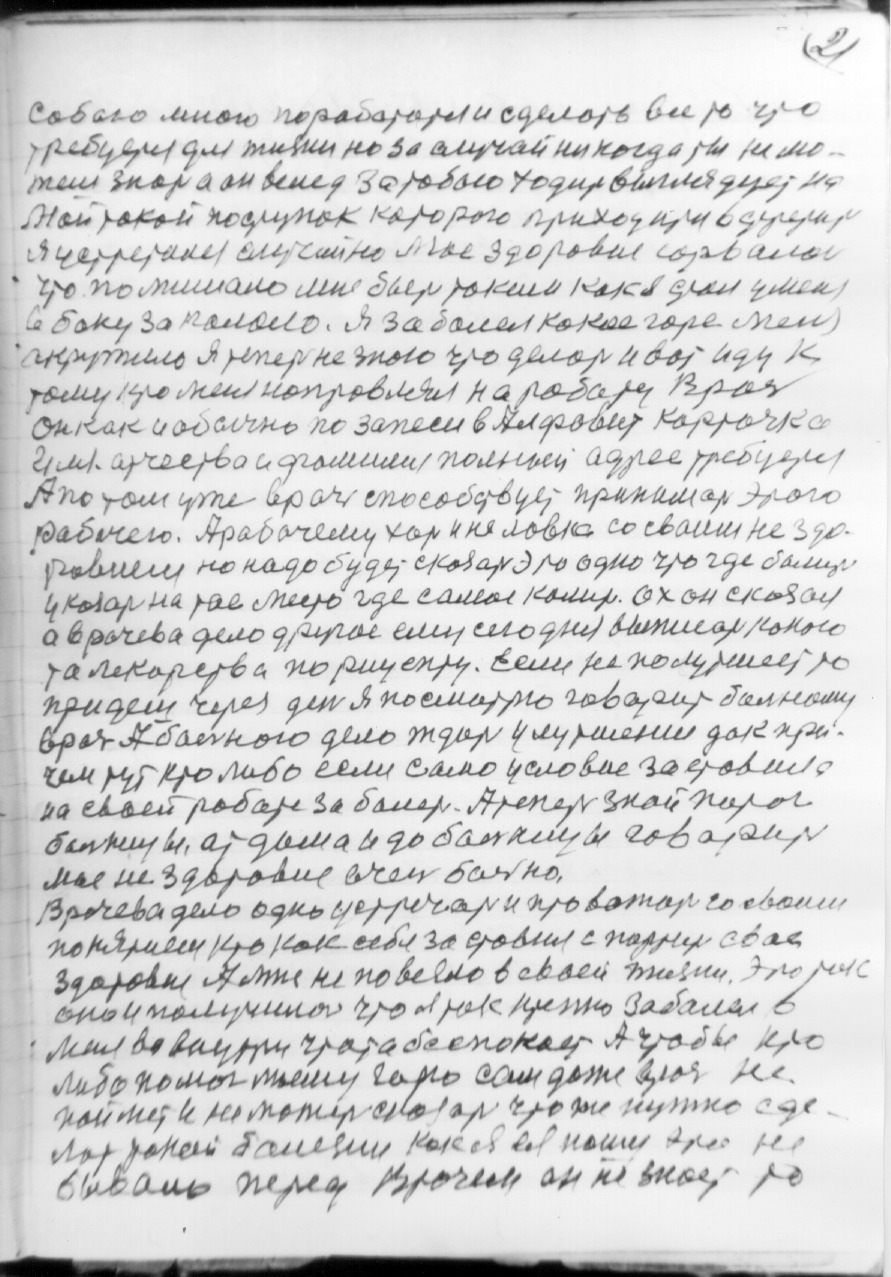 21
собаю много поработати и сделать все то что
требуется для жизни но за случай никогда ты не мо-
жеш знать а он велед за тобою ходить выглядует на
Мой токой поступок которого приходити
я устретился случайно Мое здоровие сорвалос
что по мишало мне быть таким как я стал у меня
в боку закололо. Я заболел какое горе меня
окружило я тепер не знаю что делат и вот иду к
тому кто меня нопровлял на работу Врач
он как и обычно по записи в Алфовит карточка
имя. атчества и фамилия полный адрес требуется
А по том уже врач способствует принимат этого
рабочего. А рабочему хот и не ловка со своим не здо-
ровием но надо будет сказат это одно что где болит
указат на тае место где самое колит. ох он сказал
а врачева дело другое ему сегодня выписат какого
та лекарства по рицепту. Если не полутшеет то
придеш через ден я посматрю говарит болному
врач А болного дело ждат улутшении дак при-
чем тут кто либо если само условие заставила
на своей работе заболет. А тепер знай порог
болницы. ат дома и до болницы говарит
мое не здоровие очен болно.
Врачева дело одно устречат и провожат со своим
понятием кто как себя заставил с
здоровие А мне не повезло в своей жизни. Это так
оно и получилос что я так крепко заболел в
меня во внутри чтота беспокоет А чтобы кто
либо помог моему горю сам даже врач не
поймет и не может сказат что же нужно сде-
лат такой болезни как я ей ношу не
бывало перед Врочем он не знает то